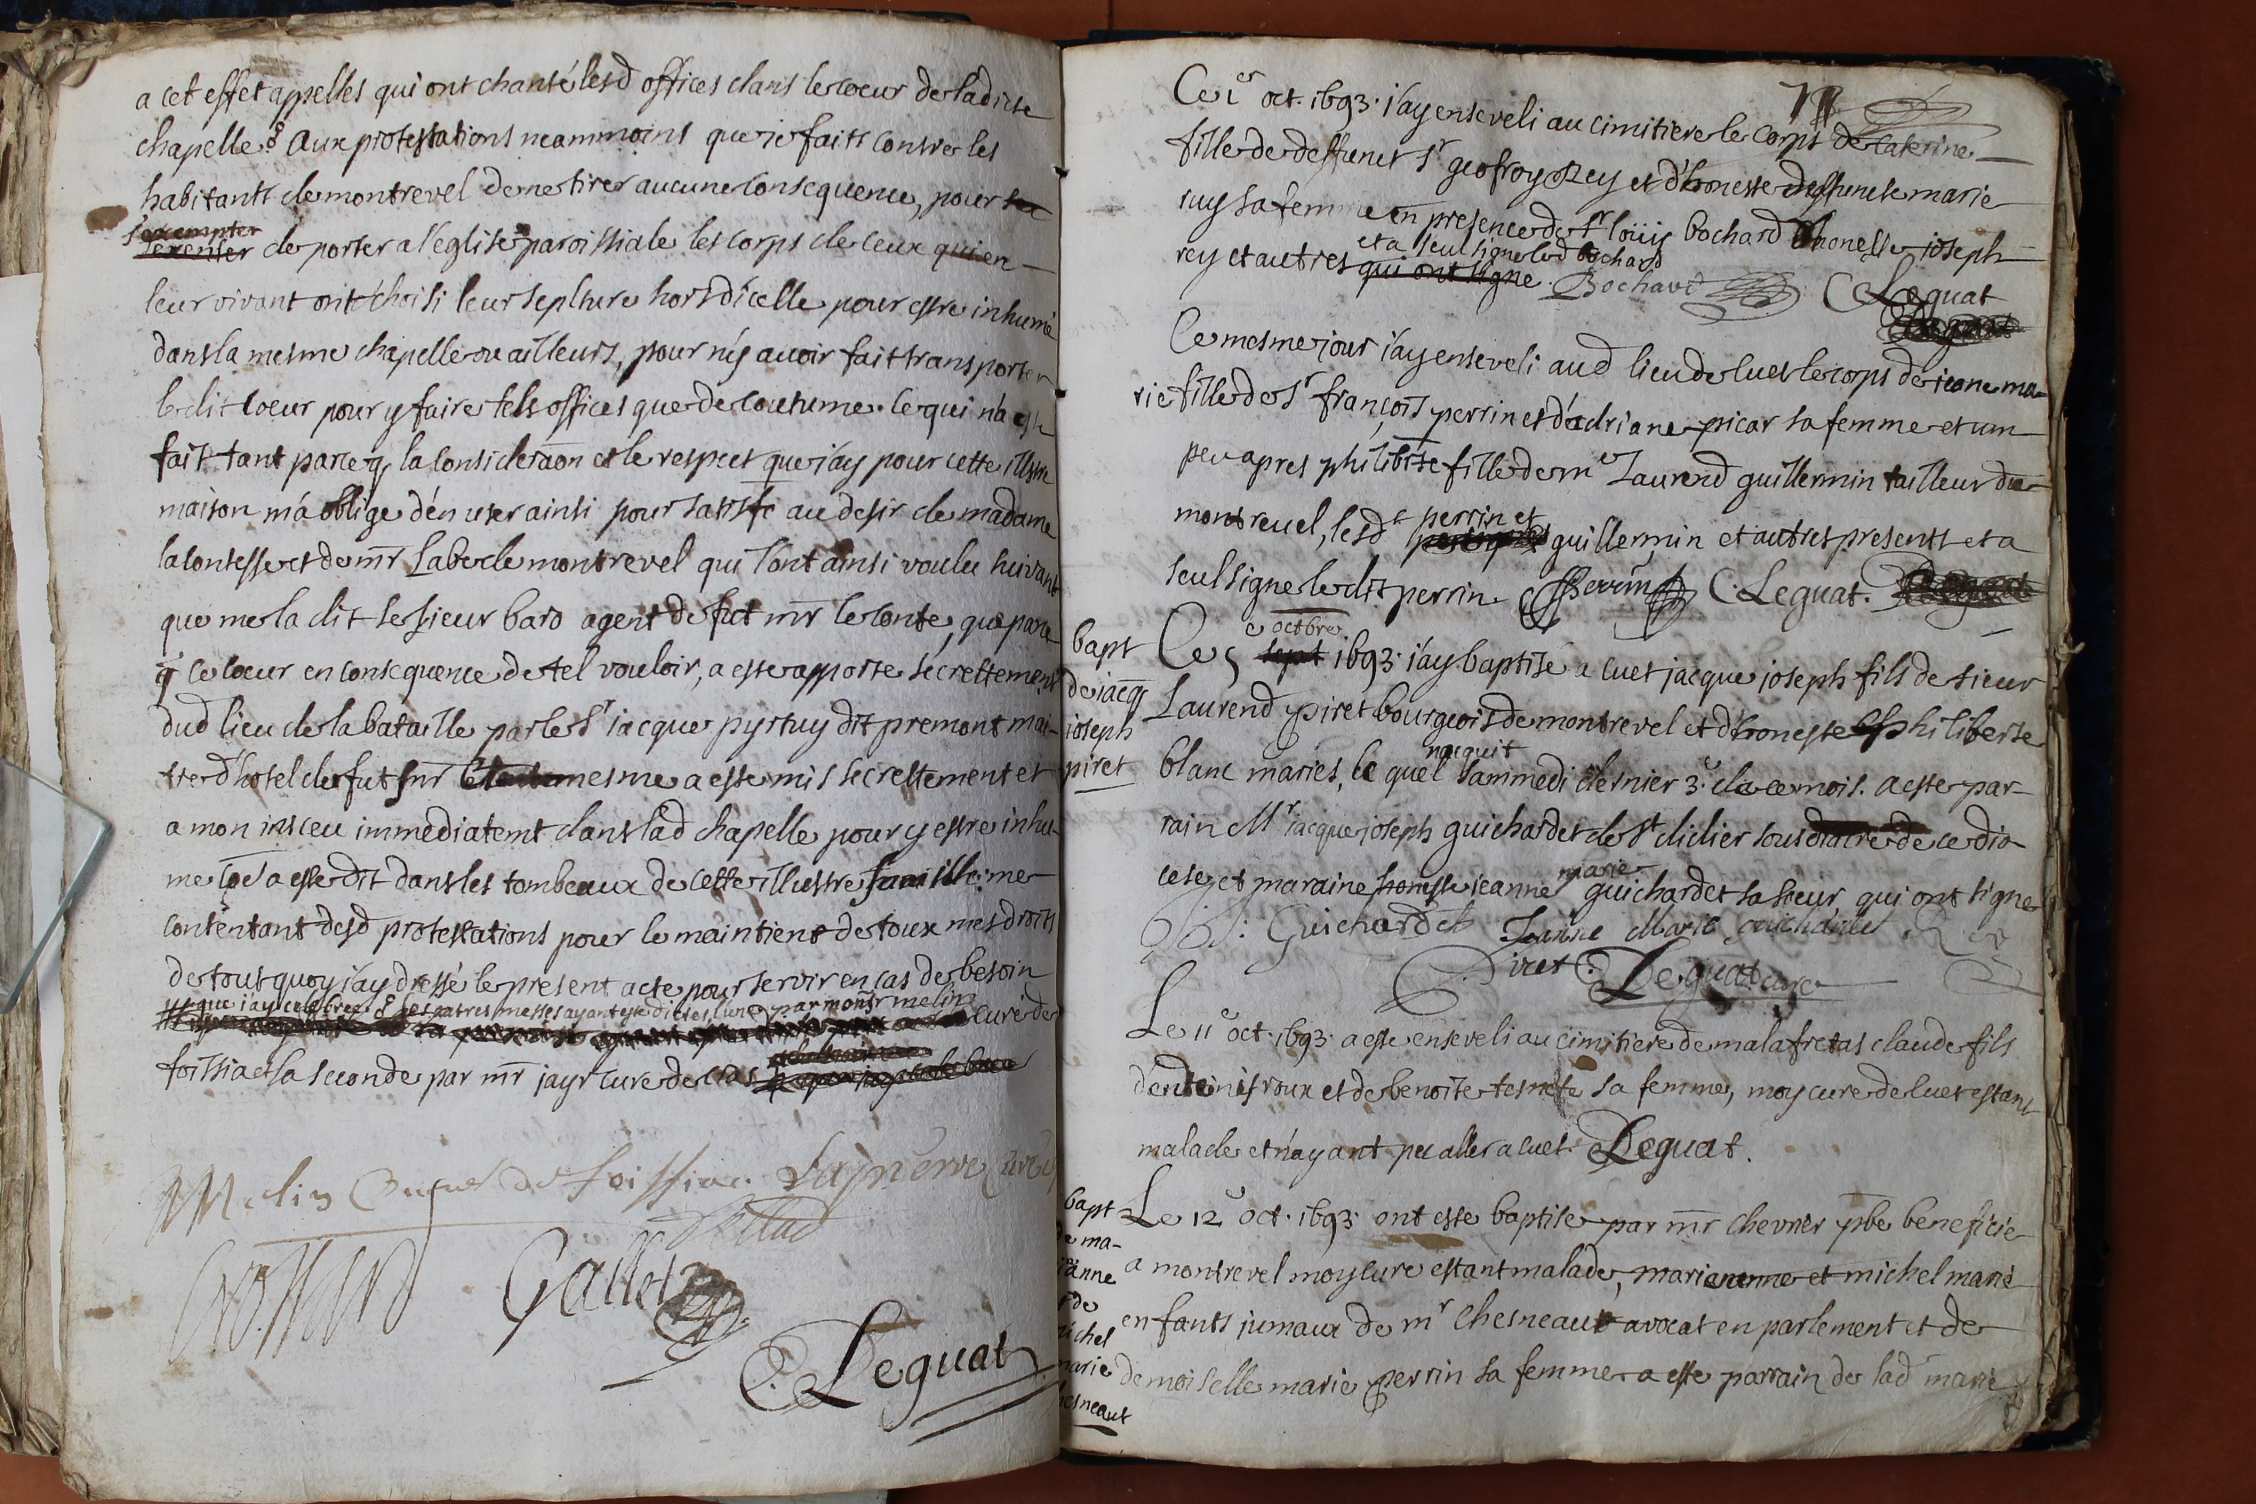 a cet effet appelles qui ont chanté lesd offices dans le coeur de ladicte
chapelle. Aux protestations neammoins que je faits contre les
habitants de montrevel de ne tirer aucune consequence, pour
s'exempter
s'exenter de porter a l'eglise paroissiale les corps de ceux qui en
leur vivant ont choisi leur seplture hors d'icelle pour estre inhumé
dans la mesme chapelle ou ailleurs, pour n'y avoir fait transporter
ledit coeur pour y faire tels offices que de coutume. ce qui n'a esté
fait tant parce q la consideraon et le respect que j'ay pour cette illstre
maison m'a oblige d'en user ainsi pour satisfe au desir de madame
la contesse et de mr l'abe de montrevel qui l'ont ainsi voulu suivant
que me la dit le sieur bard agent de fut mr le conte, que parce
q ce coeur en consequence de tel vouloir, a este apporte secrettement
dud lieu de la bataille par le sr jacque pyrtuy dit premont mai-
tre d'hotel de fut mr mesme a este mis secrettement et
a mon insceu immediatemt dans lad chapelle pour y estre inhu-
me a este dit dans les tombeaux de cette illustre famille: me
contentant desd protestations pour le maintient de toux mes droits
de tout quoy j'ay dressé le present acte pour servir en cas de besoin
que j'ay celebree & les autres messes ayant este dictes l'une par monsr melin
curé de
foissiac la seconde par mr jayr cure de cras
Melin Curé de foissiac. Lapierre Curé
Gallet
C. Leguat
Ce 1er oct. 1693. j'ay enseveli au cimitiere le corps de caterine
fille de deffunct sr geofroy Rey et d'honeste deffuncte marie
ruy sa femme en presence de sr louis bochard honeste joseph
et a seul signe led bochard
rey et autres qui ont signe. Bochard C Leguat
Ce mesme jour j'ay enseveli aud lieu de cuet le corps de jeane ma-
rie fille de sr françois perrin et d'adriane picar sa femme et un
peu apres philibte fille de me Laurend guillermin tailleur de
perrin et
montrevel, lesd guillermin et autres presents et a
seul signe le dit perrin. Perrin C. Leguat.
bapt
de jacq
joseph
piret
octbre
Ce 5 sept 1693. j'ay baptisé a cuet jacque joseph fils de sieur
Laurend piret bourgeois de montrevel et d'honeste philiberte
nacquit
blanc maries, le quel sammedi dernier 3e de ce mois. a este par-
rain Mr jacque joseph guichardet de st didier sousdiacre de ce dio
marie
cese, et maraine honeste jeanne guichardet sa soeur, qui ont signe
J. J. Guichardet Jeanne Marie guichardet
Piret. C. Leguat cure
Le 11e oct. 1693. a este enseveli au cimitiere de malafretas claude fils
denis roux et de benoite tesnete sa femme, moy cure de cuet estant
malade et n'ayant peu aller a cuet. C Leguat.
bapt
de ma-
rianne
et de
michel
marie
chesneaut
Le 12e oct. 1693. ont este baptise par mr chevrier pbre beneficie
a montrevel moy cure estant malade, marieanne et michel marie
enfants jumaux de mr Chesneaut avocat en parlement et de
demoiselle marie perrin sa femme a este parrain de lad marie